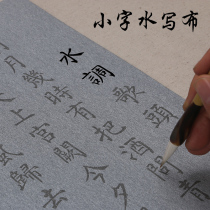 小字水写布
水調歌頭
月幾時有把酒問青
上宮闕今夕
歸去